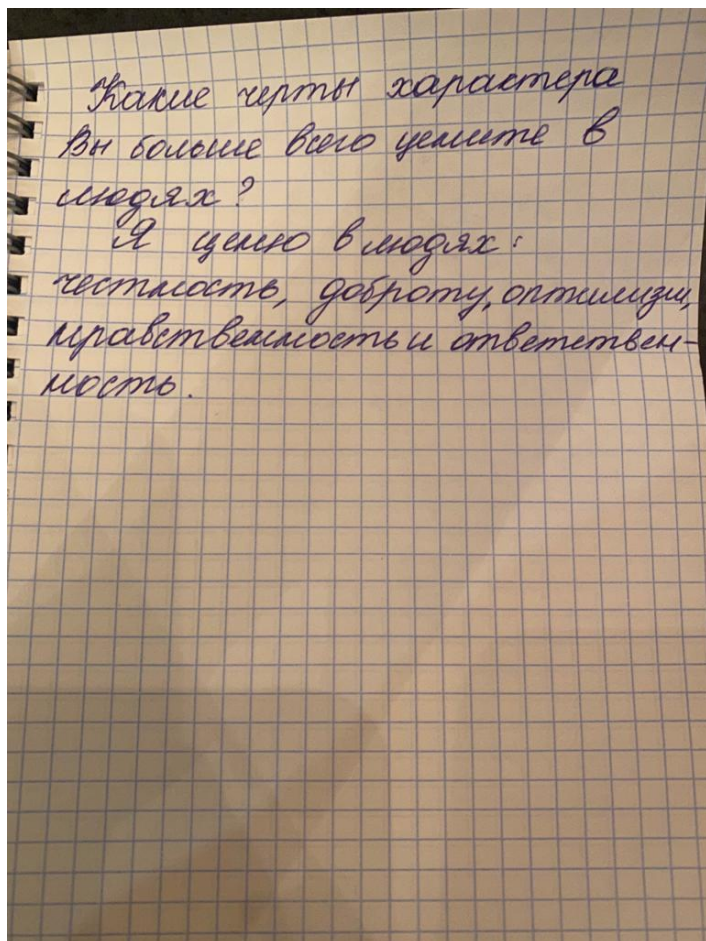 Какие черты характера
Вы больше всего цените в
людях?
Я ценю в людях:
честность, доброту, оптимизм,
нравственность и ответствен-
ность.